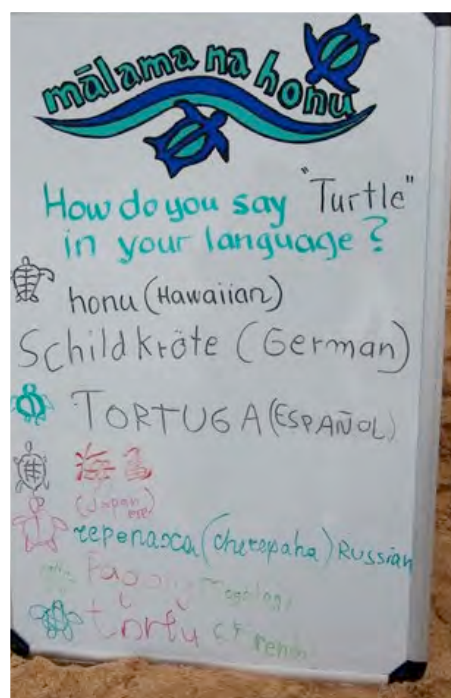 mālama na honu
How do you say "Turtle"
in your language?
honu (Hawaiian)
Schildkröte (German)
TORTUGA (ESPAÑOL)
海亀
(Japanese)
черепаха (cherepaha) Russian
Pagong
tortu